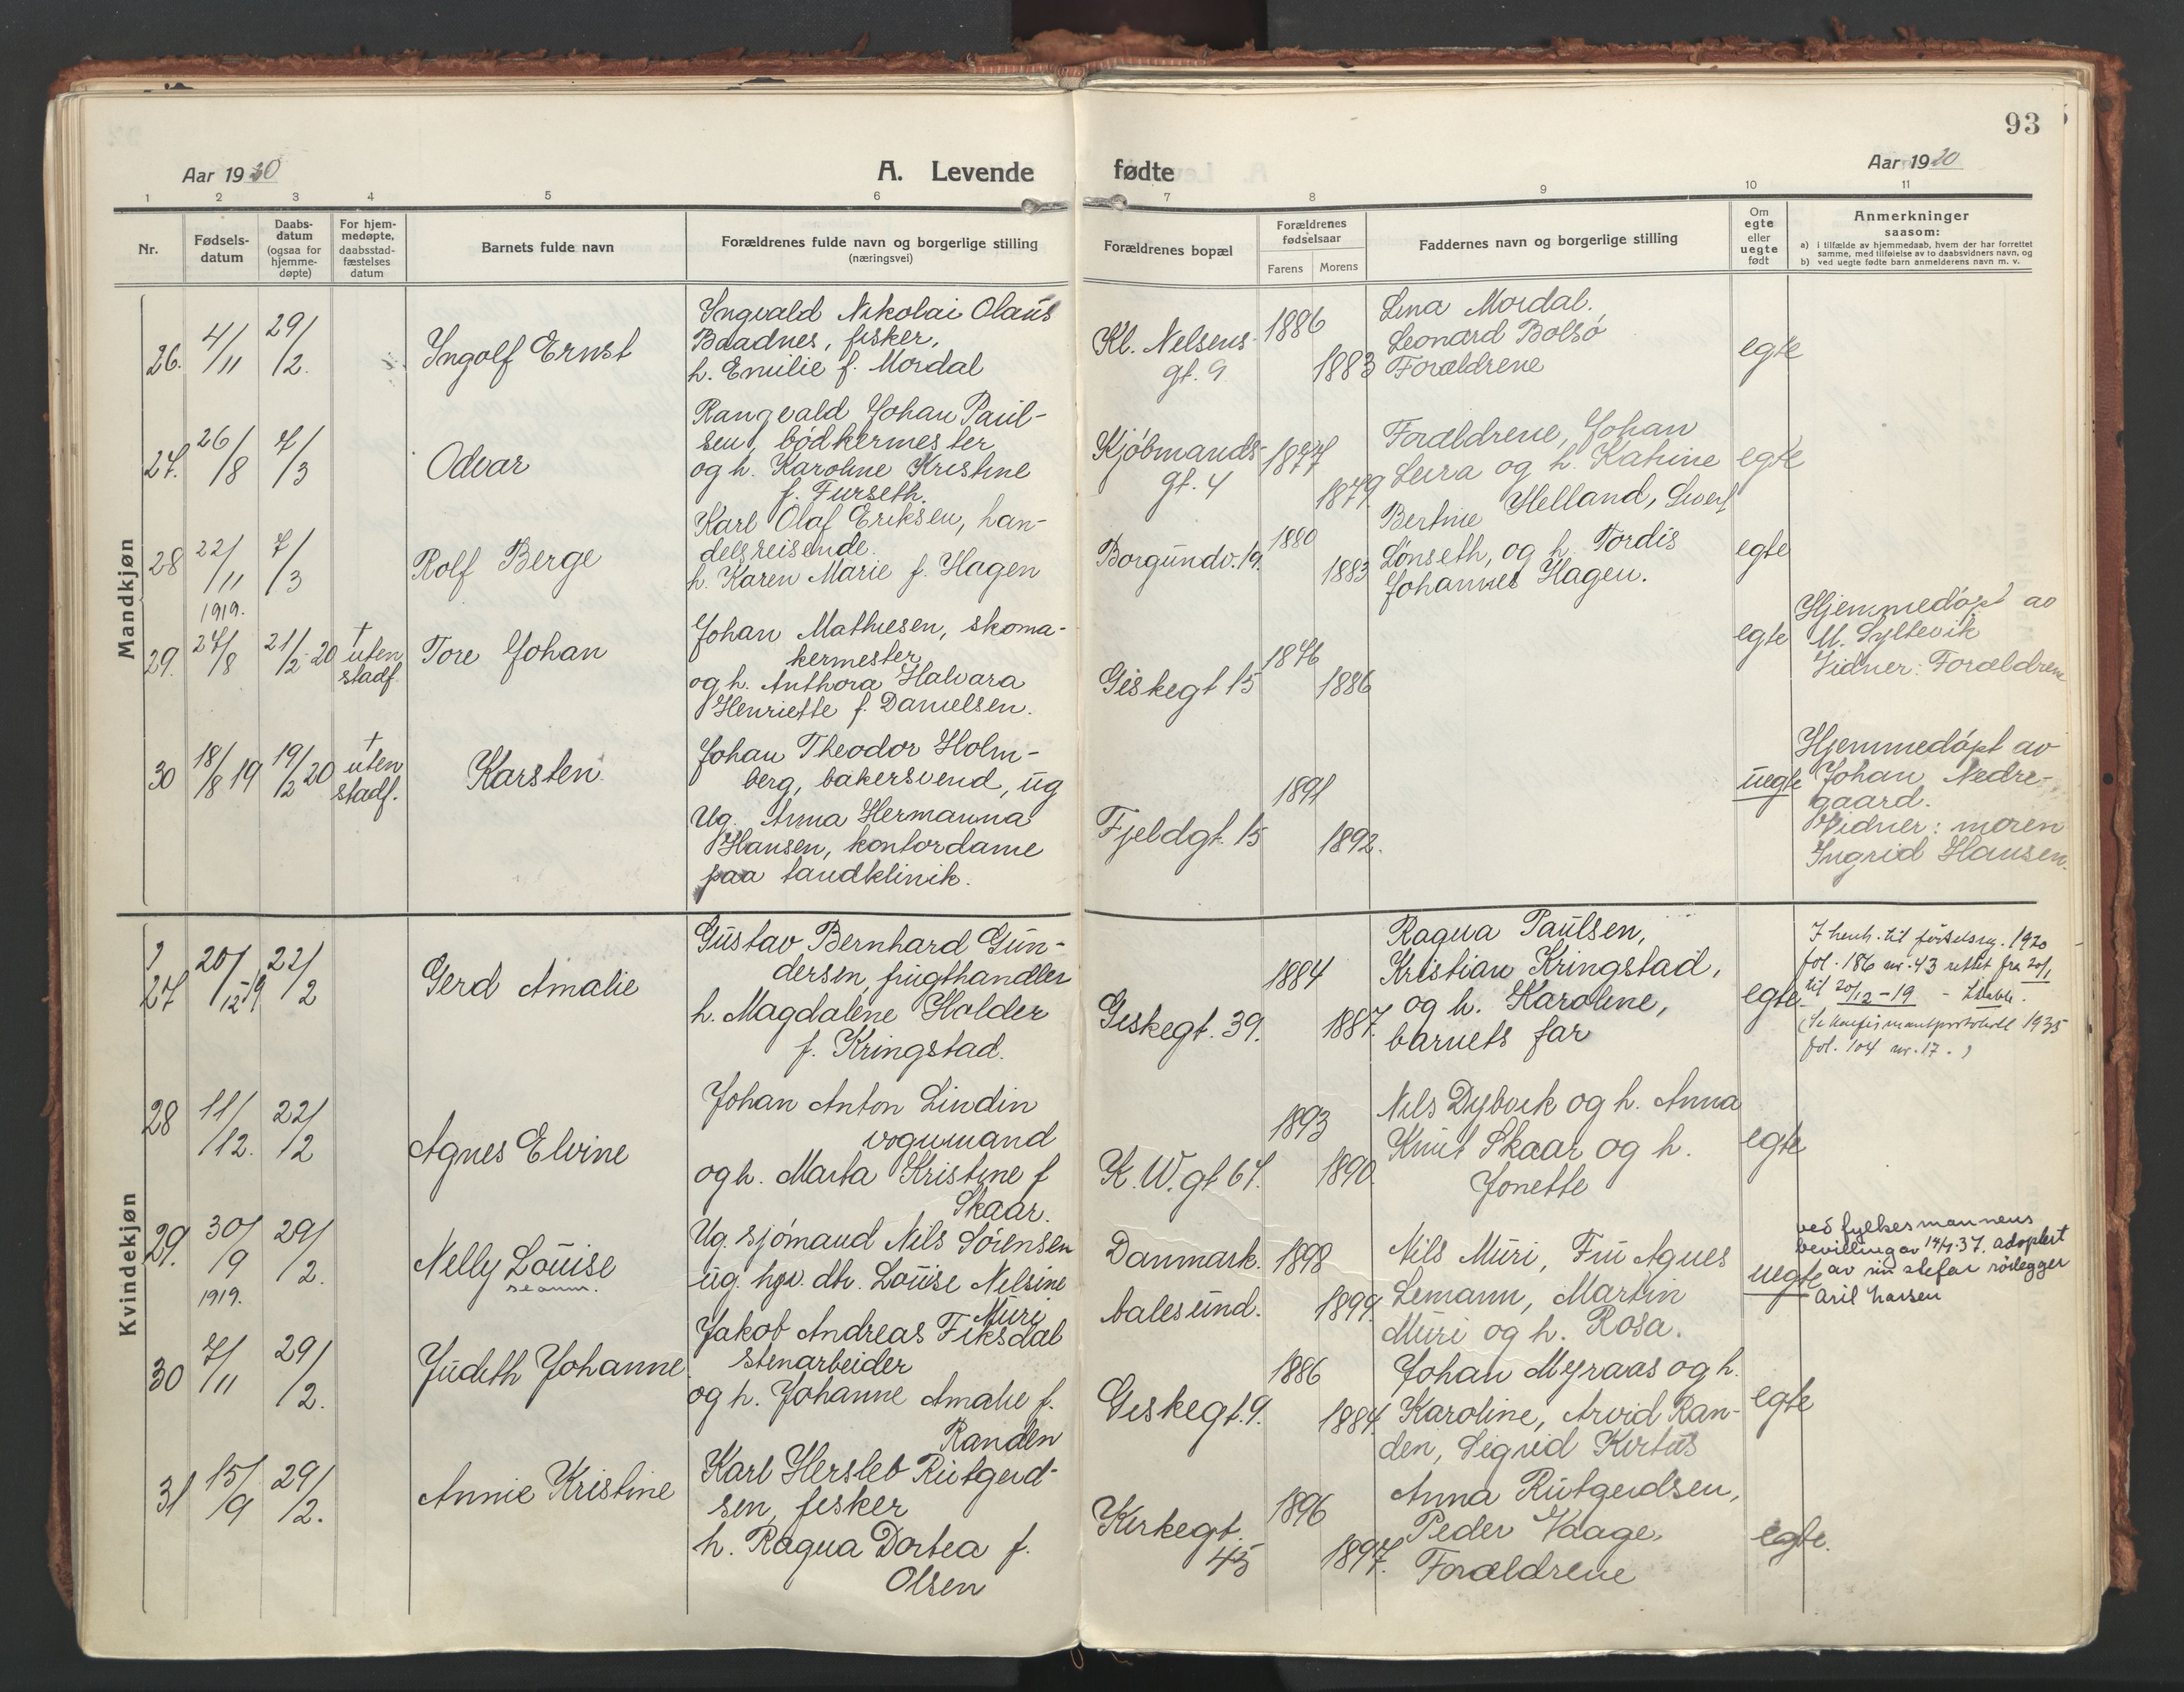 93
Aar 1920
A. Levende fødte
Aar 1920
1 2 3 4 5 6 7 8 9 10 11
Nr.
Fødsels-
datum
Daabs-
datum
(ogsaa for
hjemme-
døpte)
For hjem-
medøpte,
daabsstad-
fæstelses
datum
Barnets fulde navn
Forældrenes fulde navn og borgerlige stilling
(næringsvei)
Forældrenes bopæl
Forældrenes
fødselsaar
Farens Morens
Faddernes navn og borgerlige stilling
Om
egte
eller
uegte
født
Anmerkninger
saasom:
a) i tilfælde av hjemmedaab, hvem der har forrettet
samme, med tilføielse av to daabsvidners navn, og
b) ved uegte fødte barn anmelderens navn m. v.
Mandkjøn
26. 4/11 29/2. Ingolf Ernst
Ingvald Nikolai Olaus
Baadnes, fisker,
h. Emilie f. Mordal
Kl. Nelsens
gt. 9
1886
1883
Lina Mordal.
Leonard Bolsø
Forældrene
egte
27. 26/8 7/3 Odvar
Rangvald Johan Paul-
sen, bødkermester
og h. Karoline Kristine
f. Furseth.
Kjøbmands-
gt. 4
1877
1879
Forældrene, Johan
Leira og h. Katrine
egte
28 22/11 7/3 Rolf Berge
1919.
Karl Olaf Eriksen, han-
delsreisende.
h. Karen Marie f. Hagen
Borgundv. 19.
1880
1883
Bertine Helland, Sivert
Lønseth, og h. Tordis
Johannes Hagen.
egte
29. 27/8 21/2-20 † uten
stadf.
Tore Johan
Johan Mathiesen, skoma-
kermester
og h. Anthora Halvara
Henriette f. Danielsen.
Giskegt 15
1876
1886
egte
Hjemmedøpt av
M. Syltevik
Vidner: Forældrene
30 18/8 19 19/2 20 † uten
stadf.
Karsten
Johan Theodor Holm-
berg, bakersvend, ug
Ug. Anna Hermanna
Hansen, kontordame
paa tandklinik.
Fjeldgt. 15
1891
1892.
uegte
Hjemmedøpt av
Johan Nedre-
gaard.
Vidner: moren
Ingrid Hansen.
Kvindekjøn
27 20/12-19 22/2 Gerd Amalie
Gustav Bernhard Gun-
dersen, frugthandler
h. Magdalene Halder
f. Kringstad.
Giskegt. 39.
1884
1887.
Ragna Paulsen,
Kristian Kringstad,
og h. Karoline,
barnets far
egte
I henh. til fødselsreg. 1920
fol. 186 nr. 43 rettet fra 20/1
til 20/12-19
(Se konfirmantprotokoll 1935
fol. 104 nr. 17.)
28 11/12. 22/2 Agnes Elvine
Johan Anton Lindin
vognmand
og h. Marta Kristine f
Skaar.
K. W. gt 67.
1893
1890.
Nils Dybvik og h. Anna
Knut Skaar og h.
Jonette
egte
29. 30/9 29/2. Nelly Louise
1919.
Ug. sjømand Nils Sørensen
ug. hpr. dtr. Louise Nelsine
Muri
Danmark.
balesund.
1898
1899.
Nils Muri, Fru Agnes
Lemann, Martin
Muri og h. Rosa.
uegte
ved fylkesmannens
bevilling av 14/7.37. adoptert
av sin stefar rørlegger
Aril Larsen
30 7/11 29/2. Judith Johanne
Jakob Andreas Fiksdal
stenarbeider
og h. Johanne Amalie f.
Randen
Giskegt. 9.
1886
1884.
Johan Myraas og h.
Karoline, Arvid Ran-
den, Sigrid Kirtus
egte
31 15/9 29/2. Annie Kristine
Karl Hersleb Rutgerd-
sen, fisker
h. Ragna Dortea f.
Olsen
Kirkegt.
45
1896
1897.
Anna Rutgerdsen,
Peder Vaage,
Forældrene
egte.